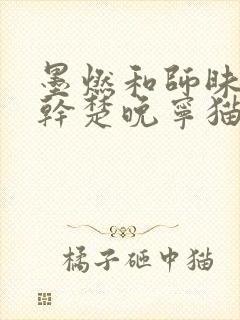 墨燃和師昧
幹楚晚寧猫
橘子砸中猫